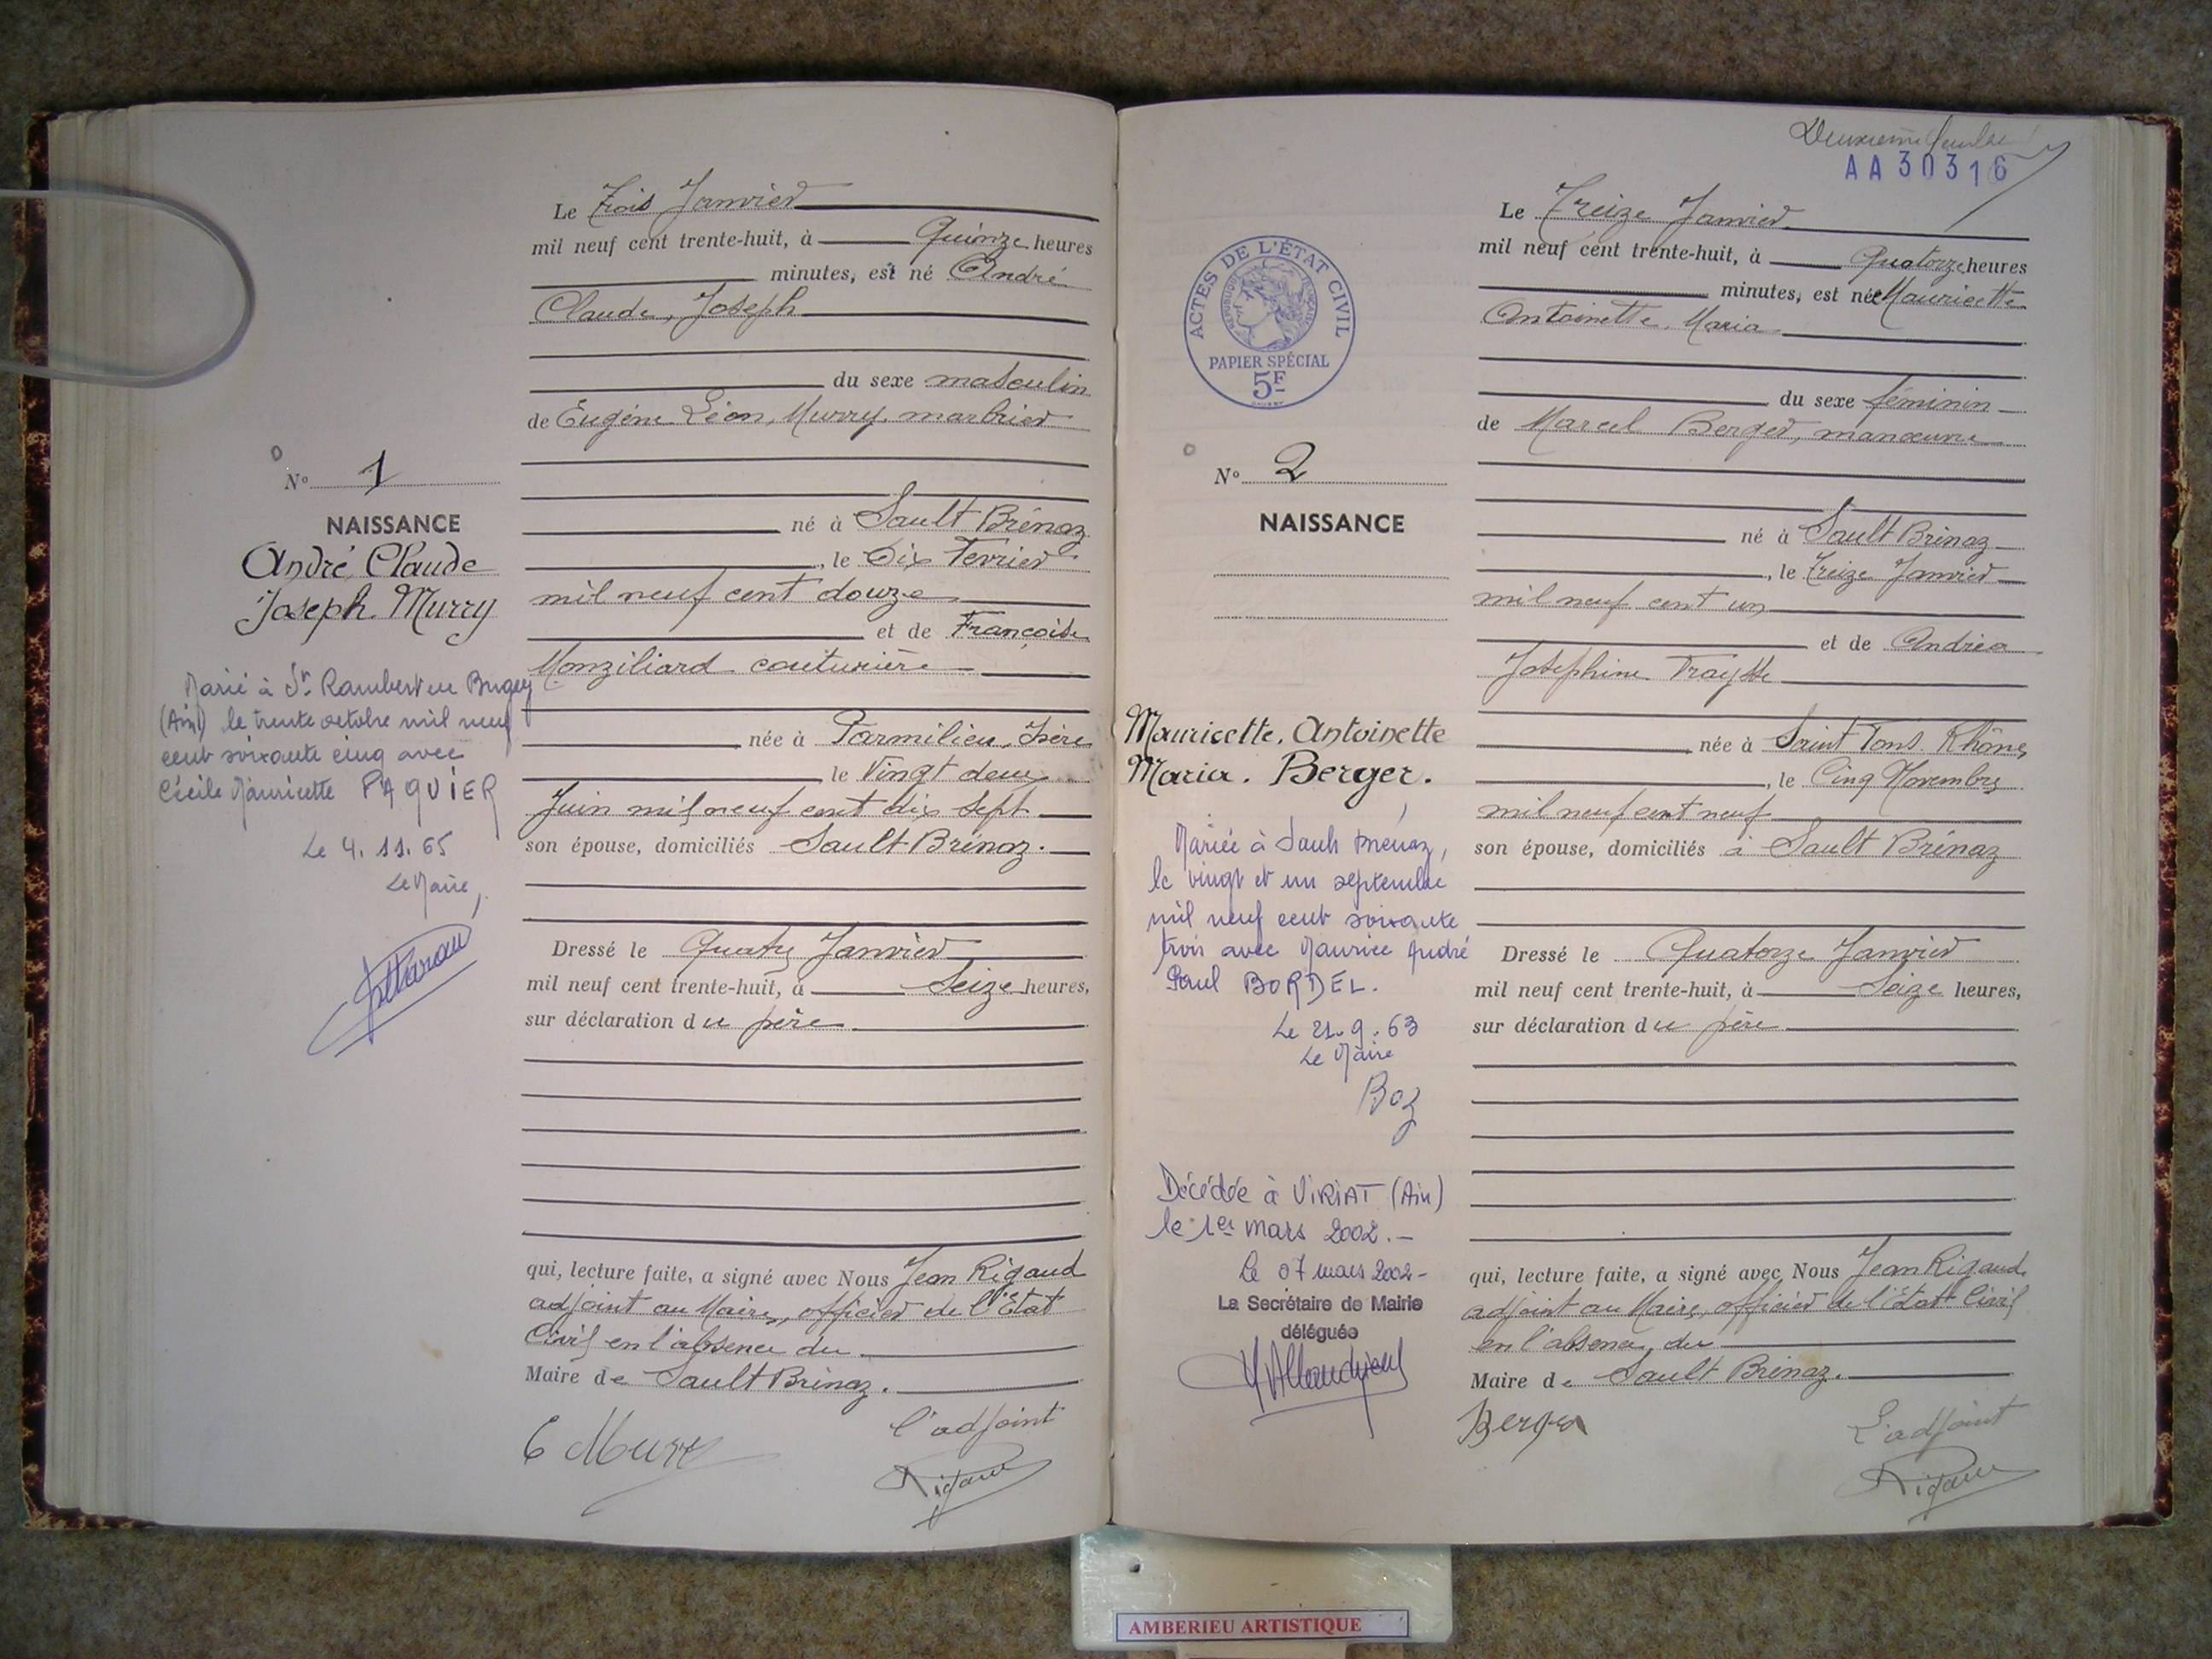 Le Trois Janvier
mil neuf cent trente-huit, à Quinze heures
minutes, est né André
Claude, Joseph
du sexe masculin
de Eugène Léon, Murry, marbrier
né à Sault Brénaz
, le Dix Fevrier
mil neuf cent douze
et de Françoise
Monziliard couturière
née à Parmilieu, Isère
le Vingt deux
Juin mil neuf cent dix sept
son épouse, domiciliés Sault Brénaz.
Dressé le Quatre Janvier
mil neuf cent trente-huit, à Seize heures,
sur déclaration du père
qui, lecture faite, a signé avec Nous Jean Rigaud
adjoint au Maire, officier de l'Etat
Civil en l'absence du
Maire de Sault Brénaz.
E Murry
l'adjoint
Rigaud
No 1
NAISSANCE
André, Claude
Joseph. Murry
Marié à St Rambert en Bugey
(Ain) le trente octobre mil neuf
cent soixante cinq avec
Cécile Mauricette PAQUIER
Le 4.11.65
Le Maire,
Deuxième feuillet
AA30316
ACTES DE L'ÉTAT CIVIL
RÉPUBLIQUE FRANÇAISE
PAPIER SPÉCIAL
5F
No 2
NAISSANCE
Mauricette, Antoinette
Maria. Berger.
Mariée à Sault Brénaz,
le vingt et un septembre
mil neuf cent soixante
trois avec Maurice André
Paul BORDEL.
Le 21.9.63
Le Maire
Boz
Décédée à VIRIAT (Ain)
le 1er mars 2002.-
Le 07 mars 2002-
La Secrétaire de Mairie
déléguée
Le Treize Janvier
mil neuf cent trente-huit, à Quatorze heures
minutes, est née Mauricette
Antoinette Maria
du sexe féminin
de Marcel Berger, manœuvre
né à Sault Brénaz
, le Treize Janvier
mil neuf cent un
et de Andréa
Joséphine Traysse
née à Saint Fons Rhône
, le Cinq Novembre
mil neuf cent neuf
son épouse, domiciliés à Sault Brénaz
Dressé le Quatorze Janvier
mil neuf cent trente-huit, à Seize heures,
sur déclaration du père
qui, lecture faite, a signé avec Nous Jean Rigaud
adjoint au Maire, officier de l'Etat Civil
en l'absence du
Maire de Sault Brénaz.
Berger
L'adjoint
Rigaud
AMBERIEU ARTISTIQUE